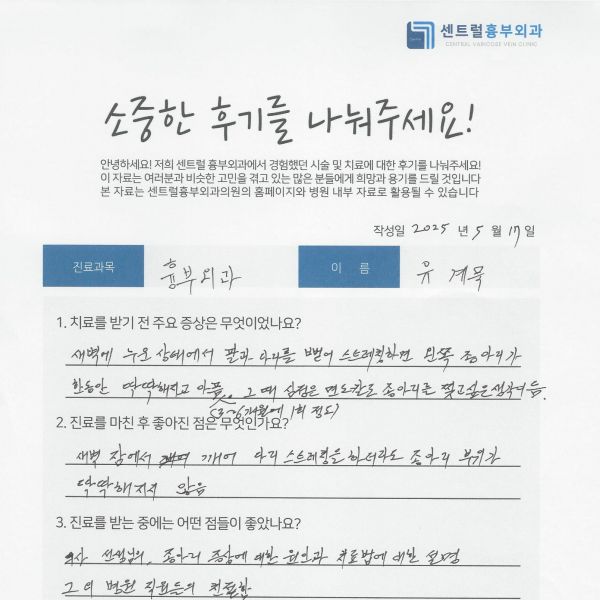 센트럴흉부외과
CENTRAL VARICOSE VEIN CLINIC
소중한 후기를 나눠주세요!
안녕하세요! 저희 센트럴 흉부외과에서 경험했던 시술 및 치료에 대한 후기를 나눠주세요!
이 자료는 여러분과 비슷한 고민을 겪고 있는 많은 분들에게 희망과 용기를 드릴 것입니다
본 자료는 센트럴흉부외과의원의 홈페이지와 병원 내부 자료로 활용될 수 있습니다
작성일 2025 년 5 월 17 일
진료과목 흉부외과 이 름 유계묵
1. 치료를 받기 전 주요 증상은 무엇이었나요?
새벽에 누운 상태에서 팔과 다리를 뻗어 스트레칭하면 왼쪽 종아리가
한동안 딱딱해지고 아픔. 그 때 심정은 면도칼로 종아리를 찢고싶은생각이듬.
(3~6개월에 1회 정도)
2. 진료를 마친 후 좋아진 점은 무엇인가요?
새벽 잠에서 깨어 다리 스트레칭을 하더라도 종아리 부위가
딱딱해지지 않음
3. 진료를 받는 중에는 어떤 점들이 좋았나요?
의사 선생님의, 종아리 증상에 대한 원인과 치료법에 대한 설명
그 외 병원 직원들의 친절함